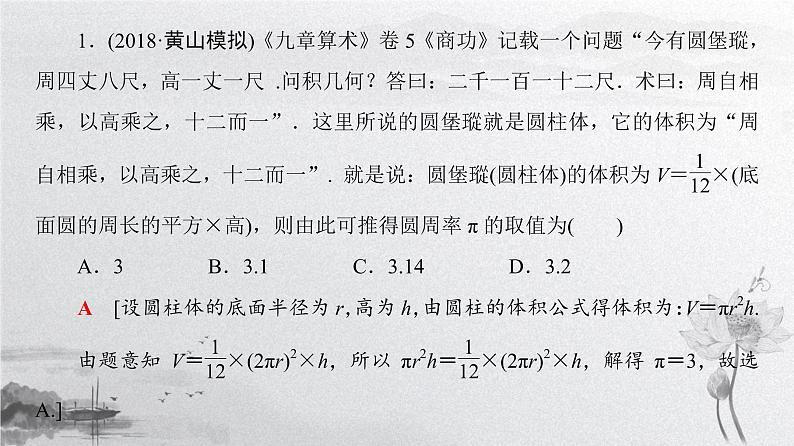 1．(2018·黄山模拟)《九章算术》卷 5《商功》记载一个问题“今有圆堡瑽，
周四丈八尺，高一丈一尺 .问积几何？答曰：二千一百一十二尺．术曰：周自相
乘，以高乘之，十二而一”．这里所说的圆堡瑽就是圆柱体，它的体积为“周
自相乘，以高乘之，十二而一”. 就是说：圆堡瑽(圆柱体)的体积为 V＝1/12×(底
面圆的周长的平方×高)，则由此可推得圆周率 π 的取值为(　　)
A．3　　B．3.1　　C．3.14　　D．3.2
A　[设圆柱体的底面半径为 r，高为 h，由圆柱的体积公式得体积为：V＝πr²h.
由题意知 V＝1/12×(2πr)²×h，所以 πr²h＝1/12×(2πr)²×h，解得 π＝3，故选
A.]